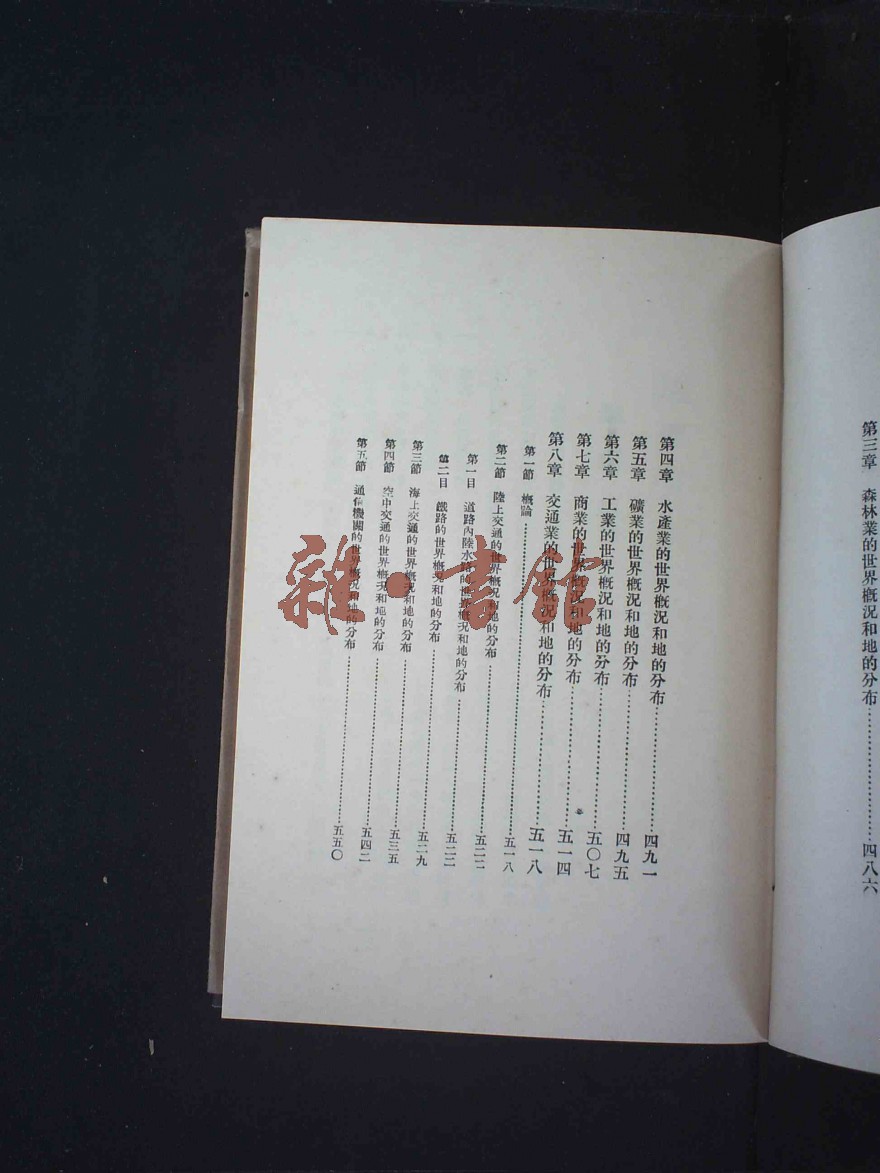 第三章　森林業的世界概況和地的分布…………………四八六
第四章　水產業的世界概況和地的分布…………………四九一
第五章　礦業的世界概況和地的分布…………………四九五
第六章　工業的世界概況和地的分布…………………五〇七
第七章　商業的世界概況和地的分布…………………五一四
第八章　交通業的世界概況和地的分布…………………五一八
第一節　概論…………………五一八
第二節　陸上交通的世界概況和地的分布…………………五二二
第一目　道路內陸水路的世界概況和地的分布…………………五二二
第二目　鐵路的世界概況和地的分布…………………五二九
第三節　海上交通的世界概況和地的分布…………………五三五
第四節　空中交通的世界概況和地的分布…………………五四二
第五節　通信機關的世界概況和地的分布…………………五五〇
雜·書館